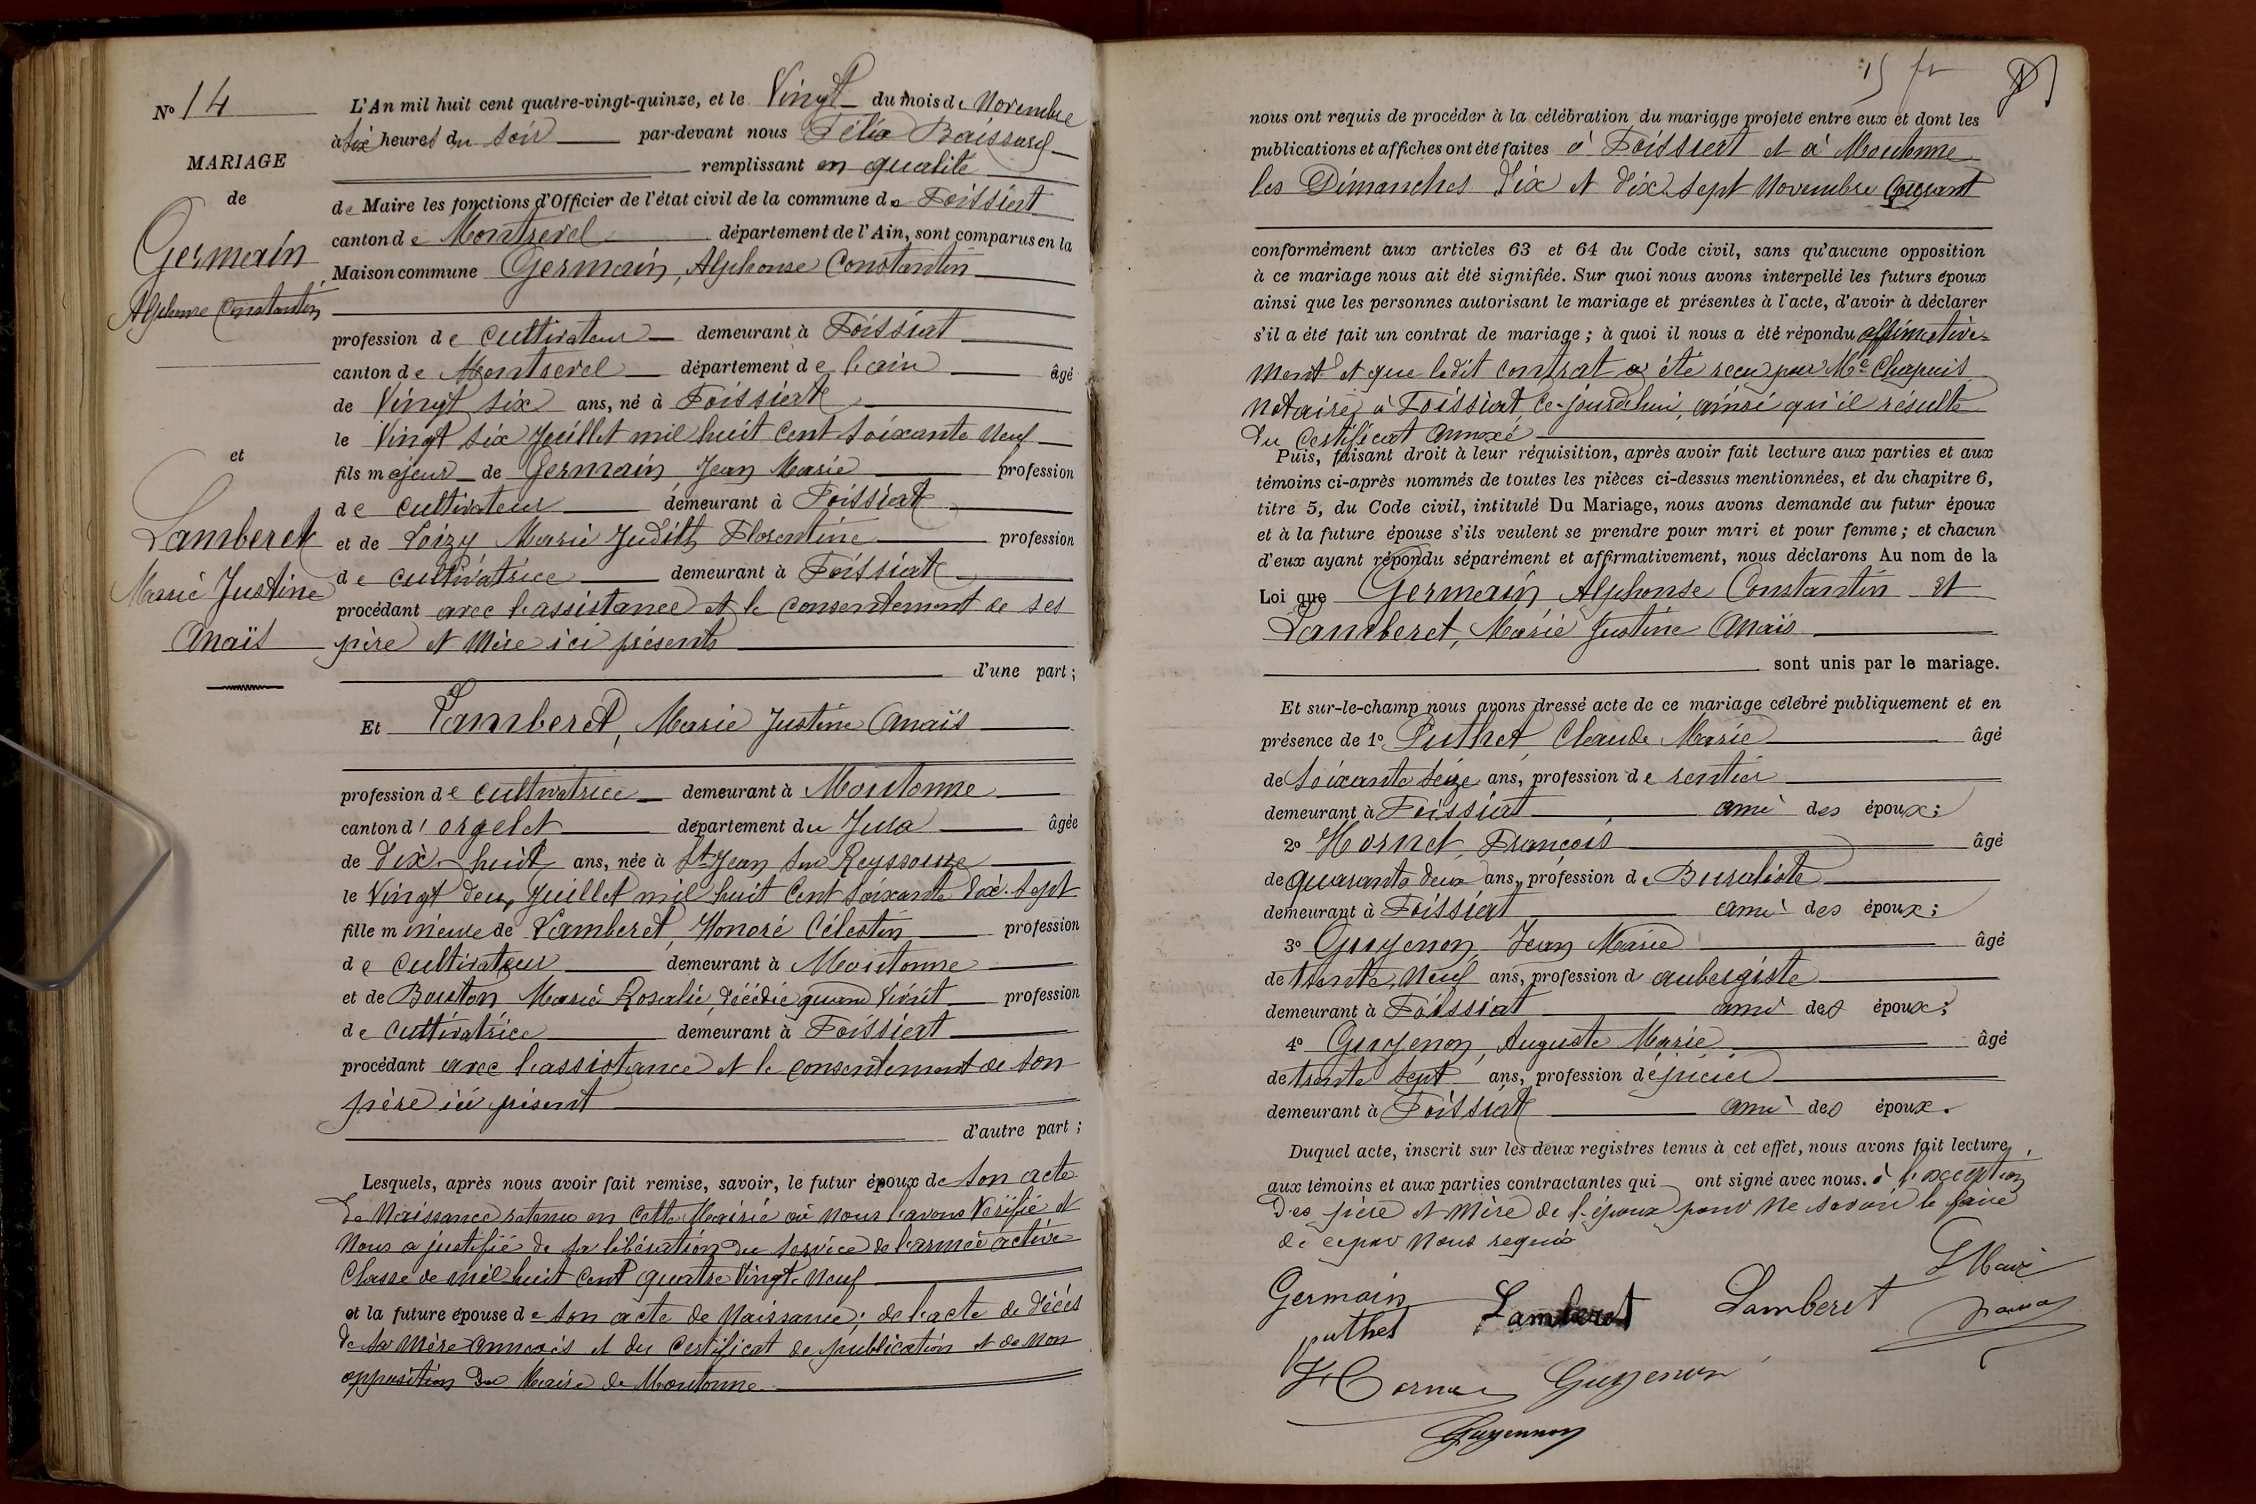 No 14
MARIAGE
de
Germain
Alphonse Constantin
et
Lamberet
Marie Justine
Anaïs
L'An mil huit cent quatre-vingt-quinze, et le Vingt du mois de Novembre
à Six heures du Soir par-devant nous Félix Boissard
remplissant en qualité
de Maire les fonctions d'Officier de l'état civil de la commune de Foissiat
canton de Montrevel département de l'Ain, sont comparus en la
Maison commune Germain, Alphonse Constantin
profession de cultivateur demeurant à Foissiat
canton de Montrevel département de l'ain âgé
de Vingt six ans, né à Foissiat
le Vingt six Juillet mil huit Cent Soixante Neuf
fils majeur de Germain Jean Marie profession
de cultivateur demeurant à Foissiat
et de Loizy Marie Judith Florentine profession
de cultivatrice demeurant à Foissiat
procédant avec l'assistance et le consentement de ses
père et Mère ici présents
d'une part ;
Et Lamberet, Marie Justine Anaïs
profession de cultivatrice demeurant à Moutonne
canton d' orgelet département du Jura âgée
de Dix-huit ans, née à St Jean Sur Reyssouze
le Vingt deux Juillet mil huit Cent Soixante Dix-Sept
fille mineure de Lamberet, Honoré Célestin profession
de cultivateur demeurant à Moutonne
et de Bouton Marie Rosalie, décédée quand Vivait profession
de cultivatrice demeurant à Foissiat
procédant avec l'assistance et le consentement de son
père ici présent
d'autre part ;
Lesquels, après nous avoir fait remise, savoir, le futur époux de Son acte
de Naissance retenu en Cette Mairie où nous l'avons Vérifié et
Nous a justifié de sa libération du Service de l'armée active
Classe de mil huit Cent quatre Vingt-Neuf
et la future épouse de son acte de Naissance ; de l'acte de décès
de sa Mère annexés et du Certificat de publication et de Non
opposition du Maire de Moutonne
15 fr
nous ont requis de procéder à la célébration du mariage projeté entre eux et dont les
publications et affiches ont été faites à Foissiat et à Moutonne
les Dimanches Dix et Dix Sept Novembre Courant
conformément aux articles 63 et 64 du Code civil, sans qu'aucune opposition
à ce mariage nous ait été signifiée. Sur quoi nous avons interpellé les futurs époux
ainsi que les personnes autorisant le mariage et présentes à l'acte, d'avoir à déclarer
s'il a été fait un contrat de mariage ; à quoi il nous a été répondu affirmative-
ment et que ledit contrat a été reçu par Me Chapuis
Notaire, à Foissiat, Ce-jourd'hui, ainsi qu'il résulte
du Certificat annexé
Puis, faisant droit à leur réquisition, après avoir fait lecture aux parties et aux
témoins ci-après nommés de toutes les pièces ci-dessus mentionnées, et du chapitre 6,
titre 5, du Code civil, intitulé Du Mariage, nous avons demandé au futur époux
et à la future épouse s'ils veulent se prendre pour mari et pour femme ; et chacun
d'eux ayant répondu séparément et affirmativement, nous déclarons Au nom de la
Loi que Germain Alphonse Constantin et
Lamberet, Marie Justine Anaïs
sont unis par le mariage.
Et sur-le-champ nous avons dressé acte de ce mariage célébré publiquement et en
présence de 1o Puthet Claude Marie âgé
de Soixante Seize ans, profession de rentier
demeurant à Foissiat ami des époux ;
2o Hornet, François âgé
de quarante deux ans, profession de Buraliste
demeurant à Foissiat ami des époux ;
3o Guyenon, Jean Marie âgé
de trente Neuf ans, profession d aubergiste
demeurant à Foissiat ami des époux ;
4o Guyenon, Auguste Marie âgé
de trente Sept ans, profession d épicier
demeurant à Foissiat ami des époux.
Duquel acte, inscrit sur les deux registres tenus à cet effet, nous avons fait lecture
aux témoins et aux parties contractantes qui ont signé avec nous. à l'exception
des père et Mère de l'époux pour Ne savoir le faire
de ce par Nous requis
Germain Lamberet Lamberet Le Maire
puthet
Guyenon
Guyennon